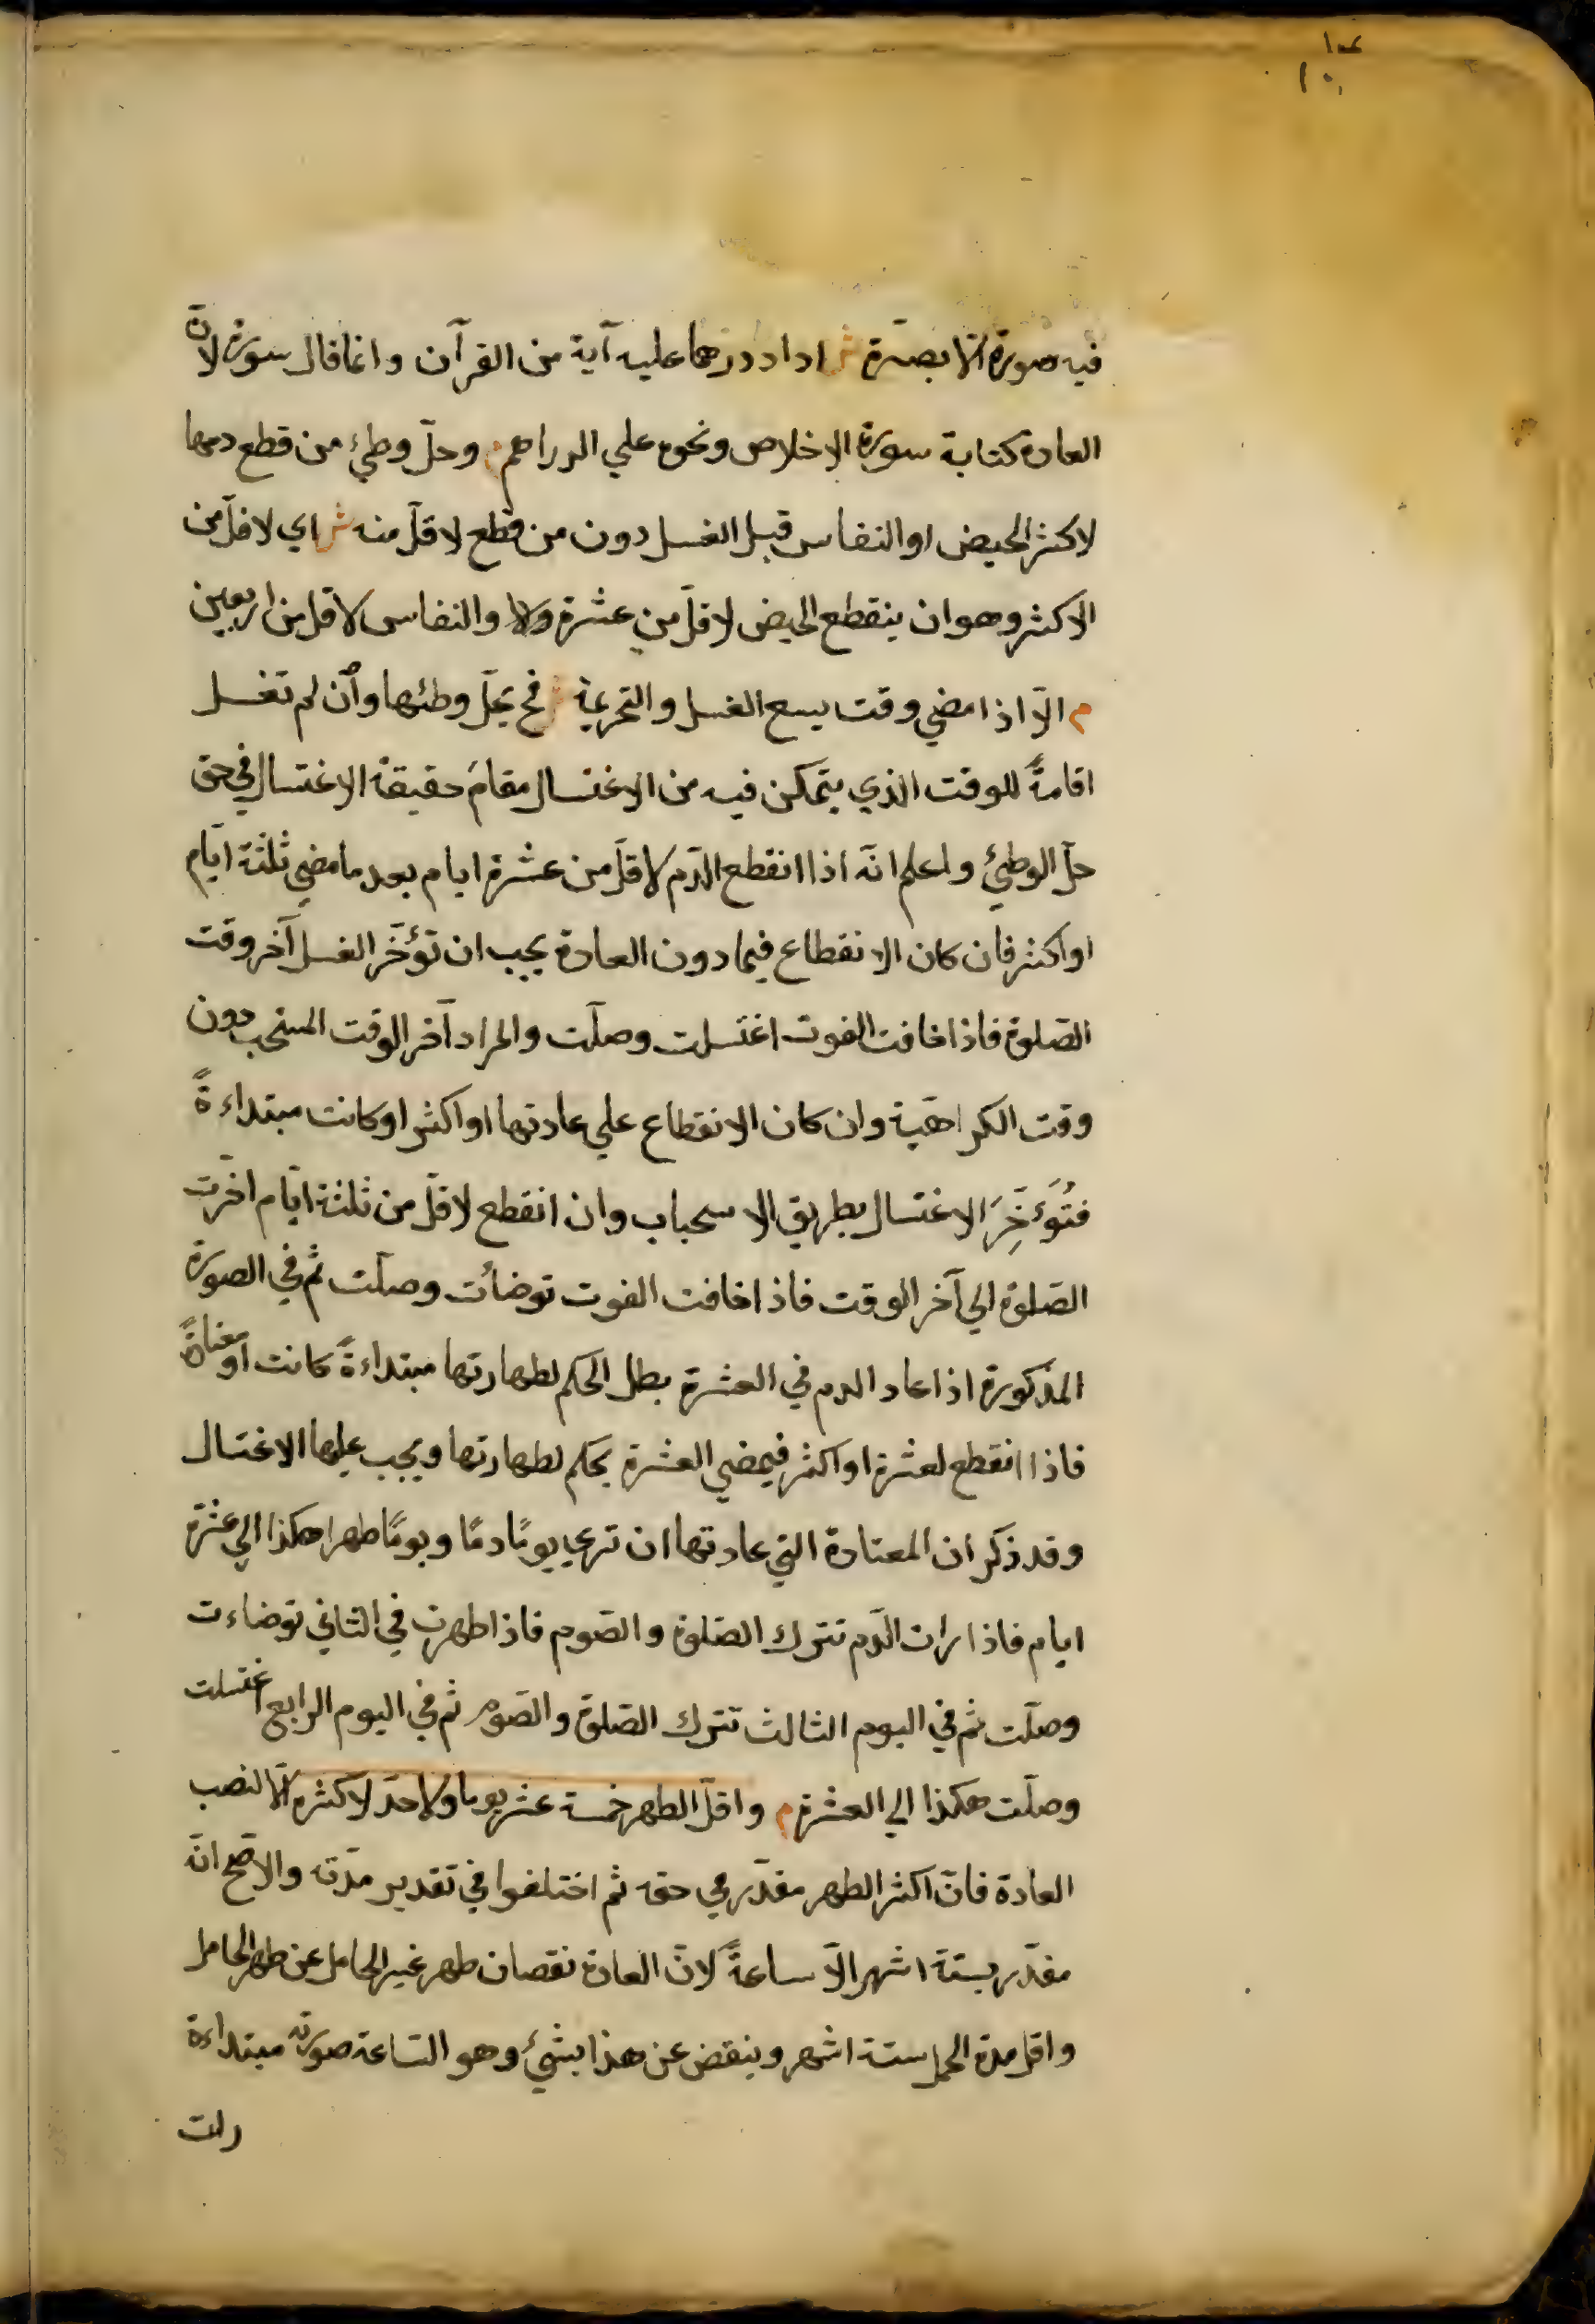 فيه صورة الا بصرّة ش اراد درهما عليه آية من القرآن وانما قال سورة لانّ
العادة كتابة سورة الاخلاص ونحوه علي الدراهم م وحلّ وطئ من قطع دمها
لاكثر الحيض او النفاس قبل الغسل دون من قطع لاقلّ منه ش اي لاقلّ من
الاكثر وهو ان ينقطع الحيض لاقلّ من عشرة والنفاس لاقل من اربعين
م الّا اذا مضي وقت يسع الغسل والتحريمة ش فح يحلّ وطئها وان لم تغسل
اقامةً للوقت الذي يتمكن فيه من الاغتسال مقامَ حقيقة الاغتسال في حق
حلّ الوطئ واعلم انّه اذا انقطع الدّم لاقلّ من عشرة ايام بعد ما مضي ثلثة ايّام
او اكثر فان كان الانقطاع فيما دون العادة يجب ان تؤخّر الغسل آخر وقت
الصّلوة فاذا خافت الفوت اغتسلت وصلّت والمراد آخر الوقت المستحب دون
وقت الكراهيّة وان كان الانقطاع علي عادتها او اكثر او كانت مبتداءةً
فتُوَءخِّرَ الاغتسال بطريق الاسحباب وان انقطع لاقلّ من ثلثة ايّام اخّرت
الصّلوة الي آخر الوقت فاذا خافت الفوت توضأت وصلّت ثم في الصورة
المذكورة اذا عاد الدم في العشرة بطل الحكم لطهارتها مبتداءةً كانت او معتادةً
فاذا انقطع لعشرة او اكثر فيمضي العشرة يحكم لطهارتها ويجب عليها الاغتسال
وقد ذكر ان المعتادة التي عادتها ان تري يومًا دمًا ويومًا طهرا هكذا الي عشرة
ايام فاذا رات الدّم تترك الصّلوة والصّوم فاذا طهرت في الثاني توضاءت
وصلّت ثم في اليوم الثالث تترك الصّلوة والصّوم ثم في اليوم الرابع اغتسلت
وصلّت هكذا الي العشرة م واقلّ الطهر خمسة عشر يوما ولا حدّ لاكثره الّا لنصب
العادة فانّ اكثر الطهر مقدّر في حقه ثم اختلفوا في تقدير مدّته والاصّح انّه
مقدّر بستّة اشهر الّا ساعةً لانّ العادة نقصان طهر غير الحامل عن طهر الحامل
واقل مدة الحمل ستة اشهر وينقض عن هذا بشئ وهو السّاعة صورته مبتداءة
رات